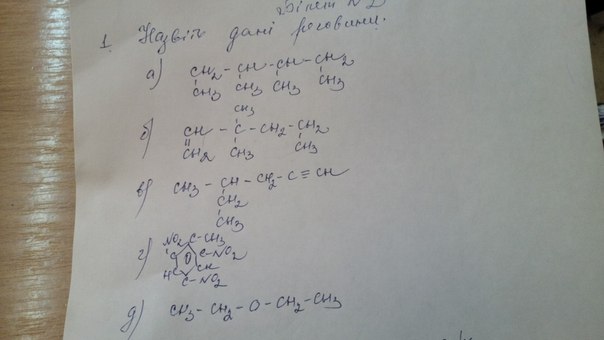 Білет №2
1. Назвіть дані речовини.
а) CH2 - CH - CH - CH2
CH3 CH3 CH3 CH3
CH3
б) CH - C - CH2 - CH2
CH2 CH3 CH3
в) CH3 - CH - CH2 - C ≡ CH
CH2
CH3
NO2 C - CH3
г) C C - NO2
HC CH
C - NO2
д) CH3 - CH2 - O - CH2 - CH3